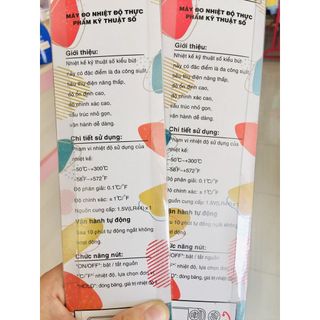 MÁY ĐO NHIỆT ĐỘ THỰC
PHẨM KỸ THUẬT SỐ
Giới thiệu:
Nhiệt kế kỹ thuật số kiểu bút
này có đặc điểm là đa công suất,
tiêu thụ điện năng thấp,
độ ổn định cao,
độ chính xác cao,
cấu trúc nhỏ gọn,
vận hành dễ dàng.
Chi tiết sử dụng:
Phạm vi nhiệt độ sử dụng của
nhiệt kế:
-50°C~+300°C
-58°F~+572°F
Độ phân giải: 0.1°C/°F
Độ chính xác: ± 1°C/°F
Nguồn cung cấp: 1.5V(LR44) x 1
Vận hành tự động
Sau 10 phút tự động ngắt không
hoạt động.
Chức năng nút:
"ON/OFF": bật / tắt nguồn
"°C/°F": nhiệt độ, lựa chọn đơn
"HOLD": đóng băng, giá trị nhiệt
MÁY ĐO NHIỆT ĐỘ THỰC
PHẨM KỸ THUẬT SỐ
Giới thiệu:
Nhiệt kế kỹ thuật số kiểu bút
này có đặc điểm là đa công suất,
tiêu thụ điện năng thấp,
độ ổn định cao,
độ chính xác cao,
cấu trúc nhỏ gọn,
vận hành dễ dàng.
Chi tiết sử dụng:
Phạm vi nhiệt độ sử dụng của
nhiệt kế:
-50°C~+300°C
-58°F~+572°F
Độ phân giải: 0.1°C/°F
Độ chính xác: ± 1°C/°F
Nguồn cung cấp: 1.5V(LR44) x 1
Vận hành tự động
Sau 10 phút tự động ngắt không
hoạt động.
Chức năng nút:
"ON/OFF": bật / tắt nguồn
"°C/°F": nhiệt độ, lựa chọn đơn
"HOLD": đóng băng, giá trị nhiệt độ